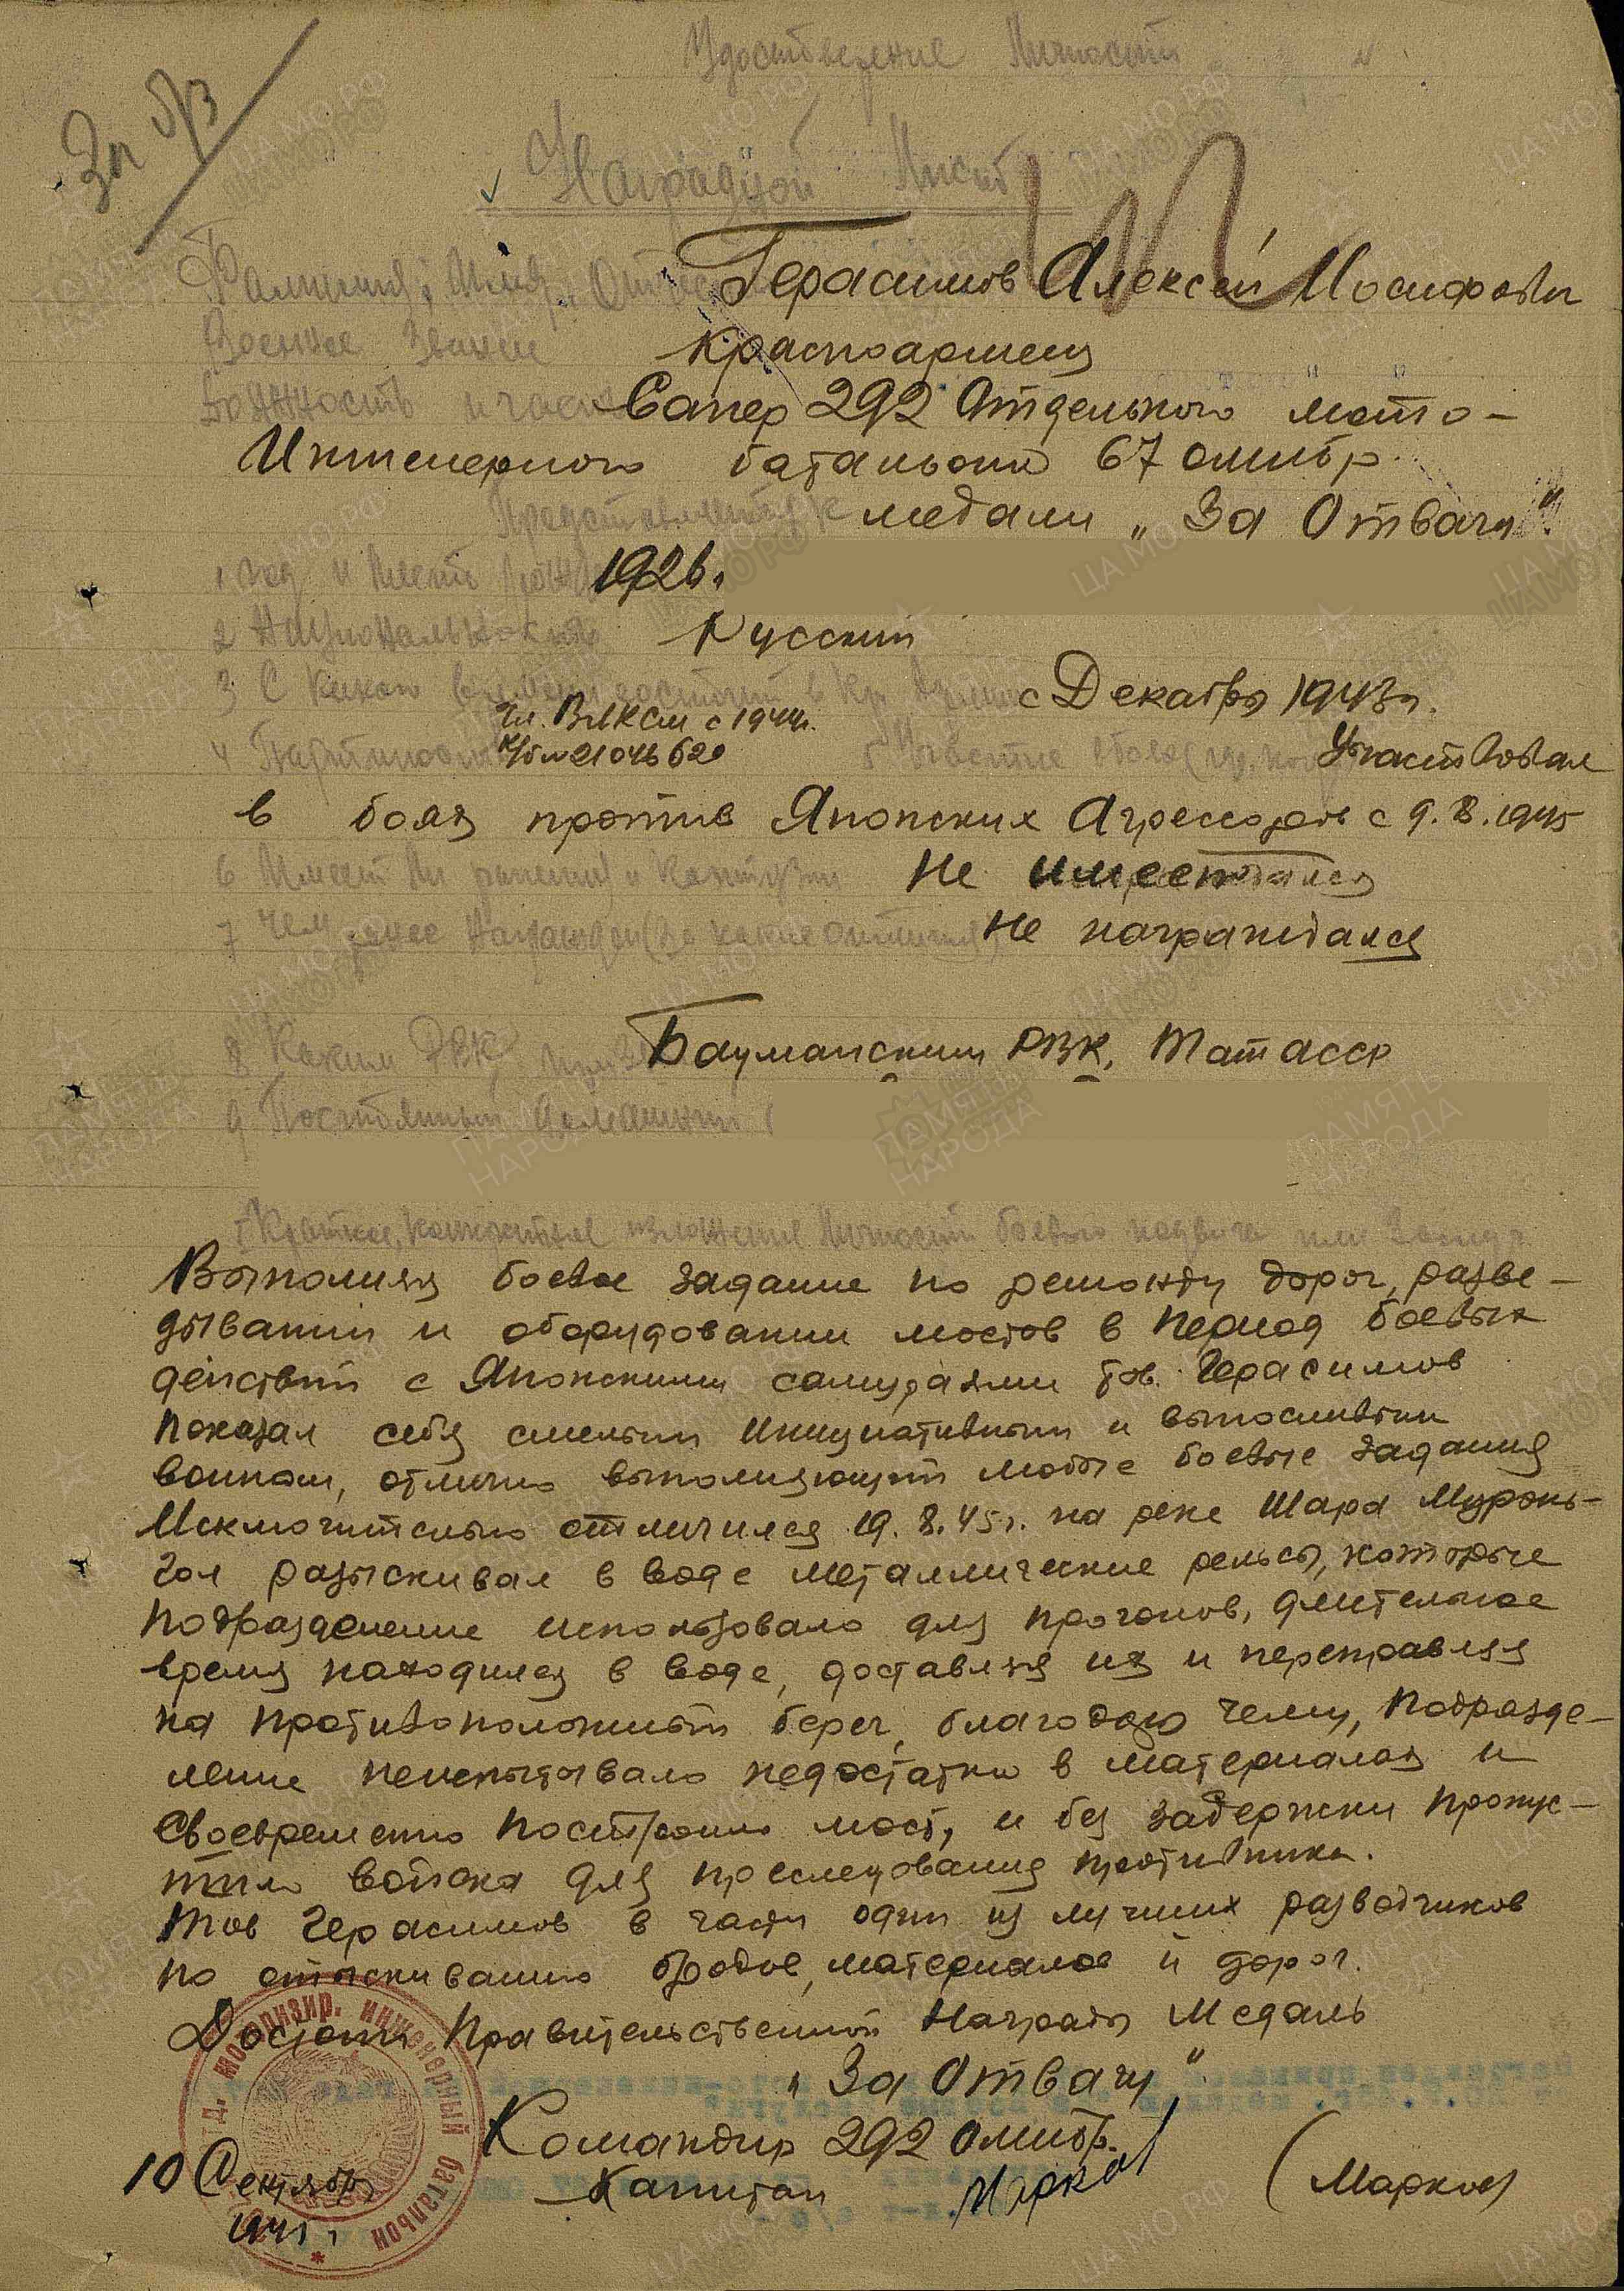 Удостоверение Личности
За б/з
Наградной Лист
Фамилия, Имя, Отчес Герасимов Алексей Иосифович
Военное Звание красноармеец
Должность и часть Сапер 292 Отдельного мото-
Инженерного батальона 67 омибр.
Представляется к медали „За Отвагу".
1 Год и место рожд 1926.
2 Национальность Русский
3 С какого времени состоит в Кр. Армии с Декабря 1943г.
Чл. ВЛКСМ с 1944г.
4 Партийность к/б №21046620 5 Участие в боях (где, когда) Участвовал
в боях против Японских Агрессоров с 9.8.1945
6 Имеет ли ранения и контузии Не имеет
7 Чем ранее награжден (за какие отличия) Не награждался
8 Каким РВК призван Бауманским РВК, ТатАССР
9 Постоянный домашний
I Краткое, конкретное изложение личного боевого подвига или заслуг
Выполняя боевое задание по ремонту дорог, разве-
дывании и оборудовании мостов в период боевых
действий с Японскими самураями тов. Герасимов
показал себя смелым инициативным и выносливым
воином, отлично выполняющий любые боевые задания
Исключительно отличился 19.8.45г. на реке Шара Мурэнь-
Гол разыскивал в воде металлические рельсы, которые
подразделение использовало для прогонов, длительное
время находился в воде, доставляя их и переправляя
на противоположный берег, благодаю чему, подразде-
ление неиспытывало недостатка в материалах и
своевременно построило мост, и без задержки пропус-
тило войска для преследования противника.
Тов Герасимов в части один из лучших разведчиков
по отыскиванию бродов, материалов и дорог.
Достоин Правительственной Награды Медаль
„За Отвагу"
Командир 292 Омибр.
10 Сентября Капитан Марков (Марков)
1945г.
отд. моторизир. инженерный батальон
ЦА МО РФ
ПАМЯТЬ НАРОДА